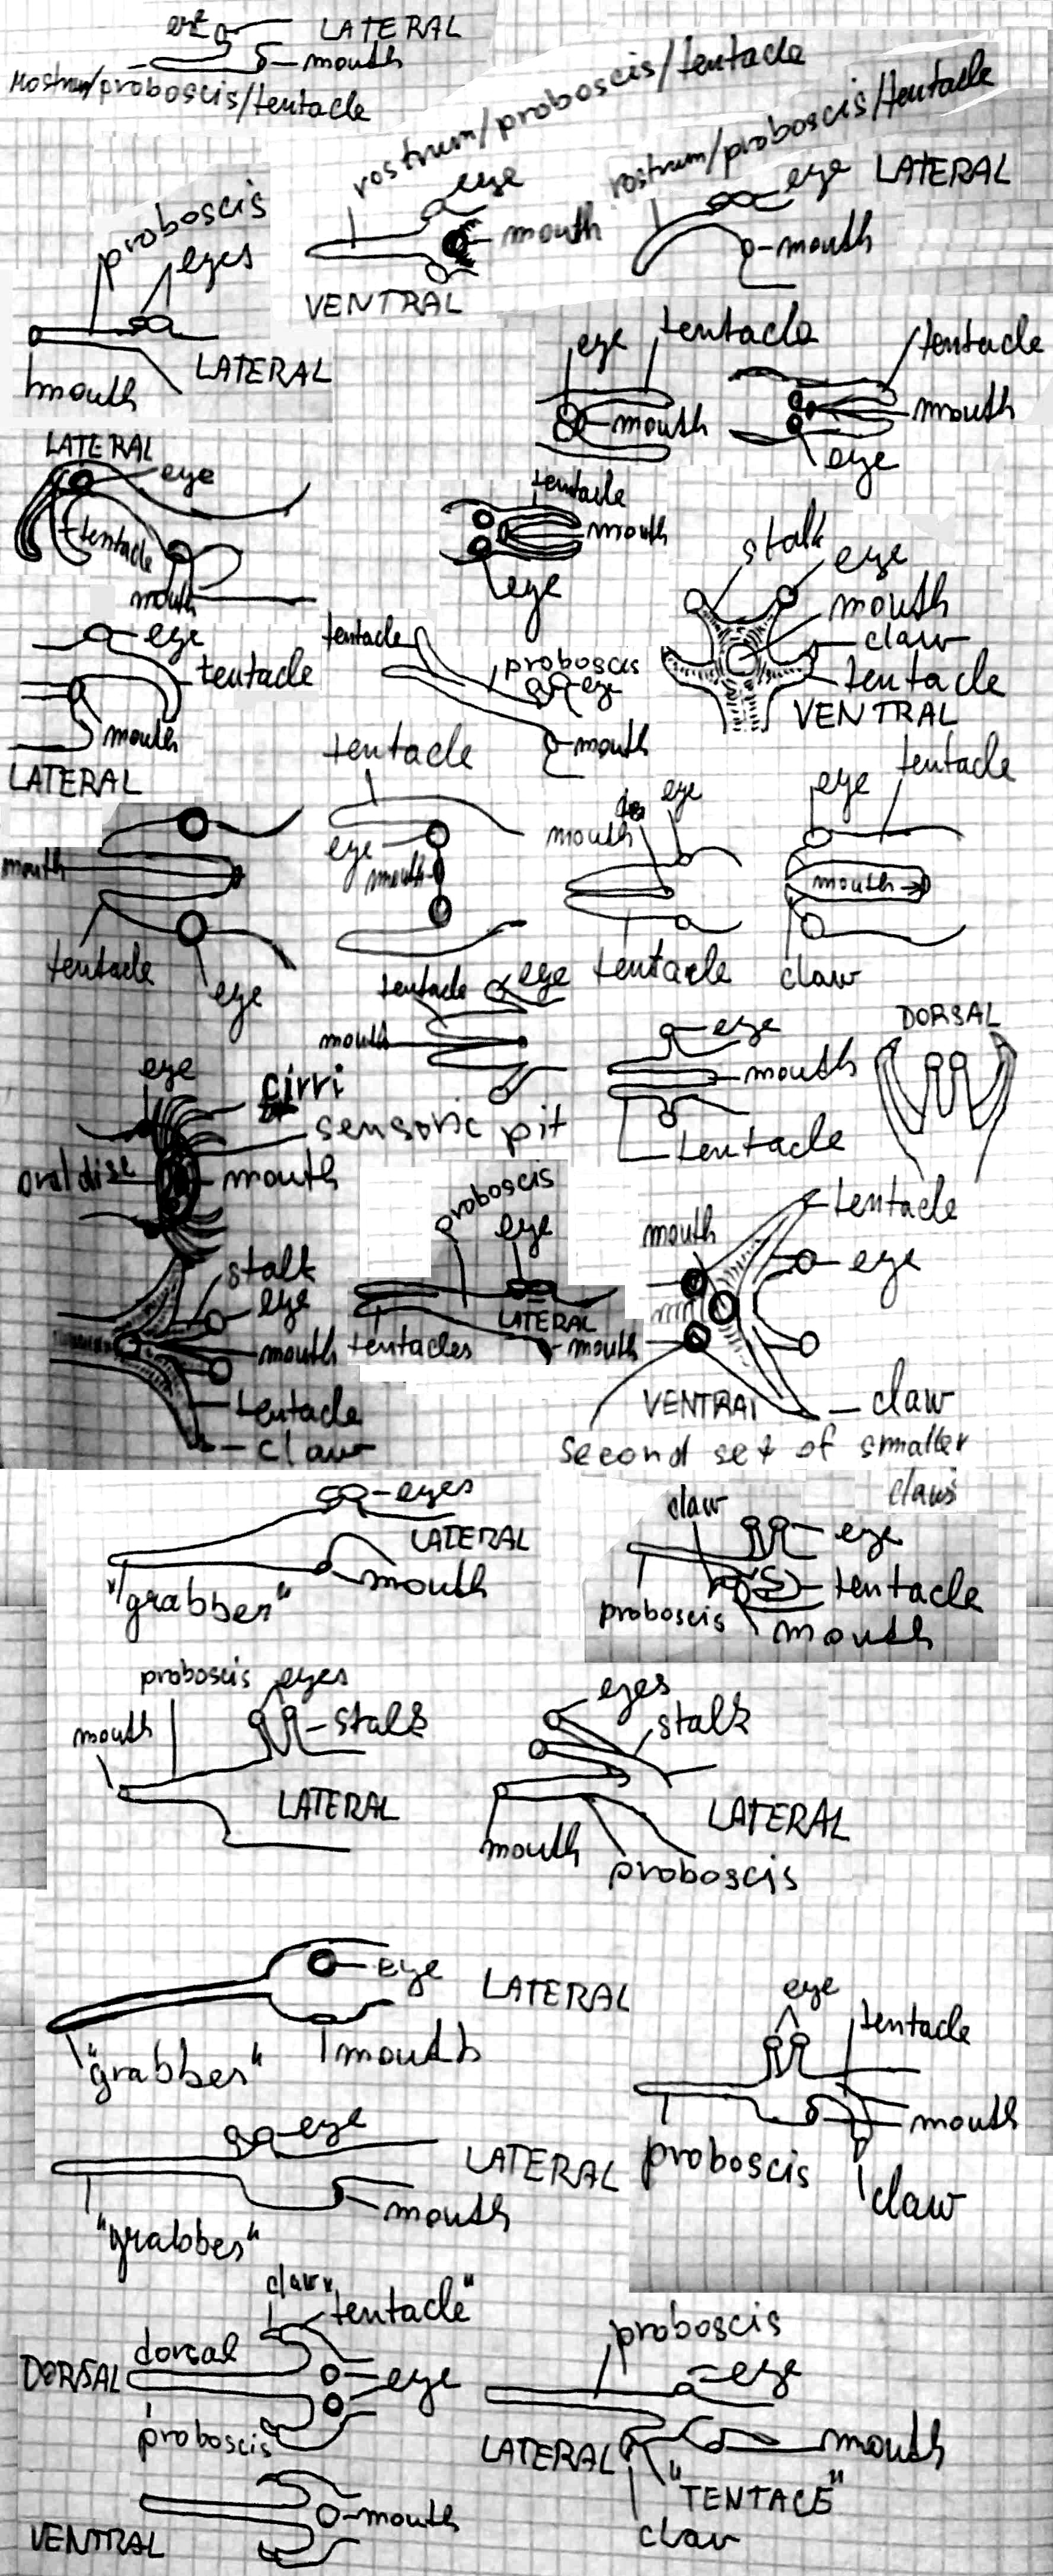 eye
LATERAL
mouth
Rostrum/proboscis/tentacle
rostrum/proboscis/tentacle
eye
mouth
VENTRAL
rostrum/proboscis/tentacle
eye LATERAL
mouth
proboscis
eyes
LATERAL
mouth
eye
tentacle
mouth
tentacle
mouth
eye
LATERAL
eye
tentacle
mouth
tentacle
mouth
eye
stalk
eye
mouth
claw
tentacle
VENTRAL
eye
tentacle
mouth
LATERAL
tentacle
proboscis
eye
mouth
tentacle
eye
mouth
mouth
eye
tentacle
eye
tentacle
mouth
claw
mouth
tentacle
eye
tentacle
eye
mouth
eye
mouth
tentacle
DORSAL
eye
cirri
sensoric pit
oral disc
mouth
proboscis
eye
LATERAL
tentacles
mouth
mouth
tentacle
eye
VENTRAL
claw
Second set of smaller
claws
stalk
eye
mouth
tentacle
claw
eyes
LATERAL
mouth
"grabber"
claw
eye
tentacle
proboscis
mouth
proboscis
eyes
mouth
stalk
LATERAL
eyes
stalk
LATERAL
mouth
proboscis
eye
LATERAL
mouth
"grabber"
eye
tentacle
mouth
proboscis
claw
eye
LATERAL
mouth
"grabber"
claw
"tentacle"
dorsal
DORSAL
eye
proboscis
mouth
VENTRAL
proboscis
eye
LATERAL
mouth
"TENTACE"
claw